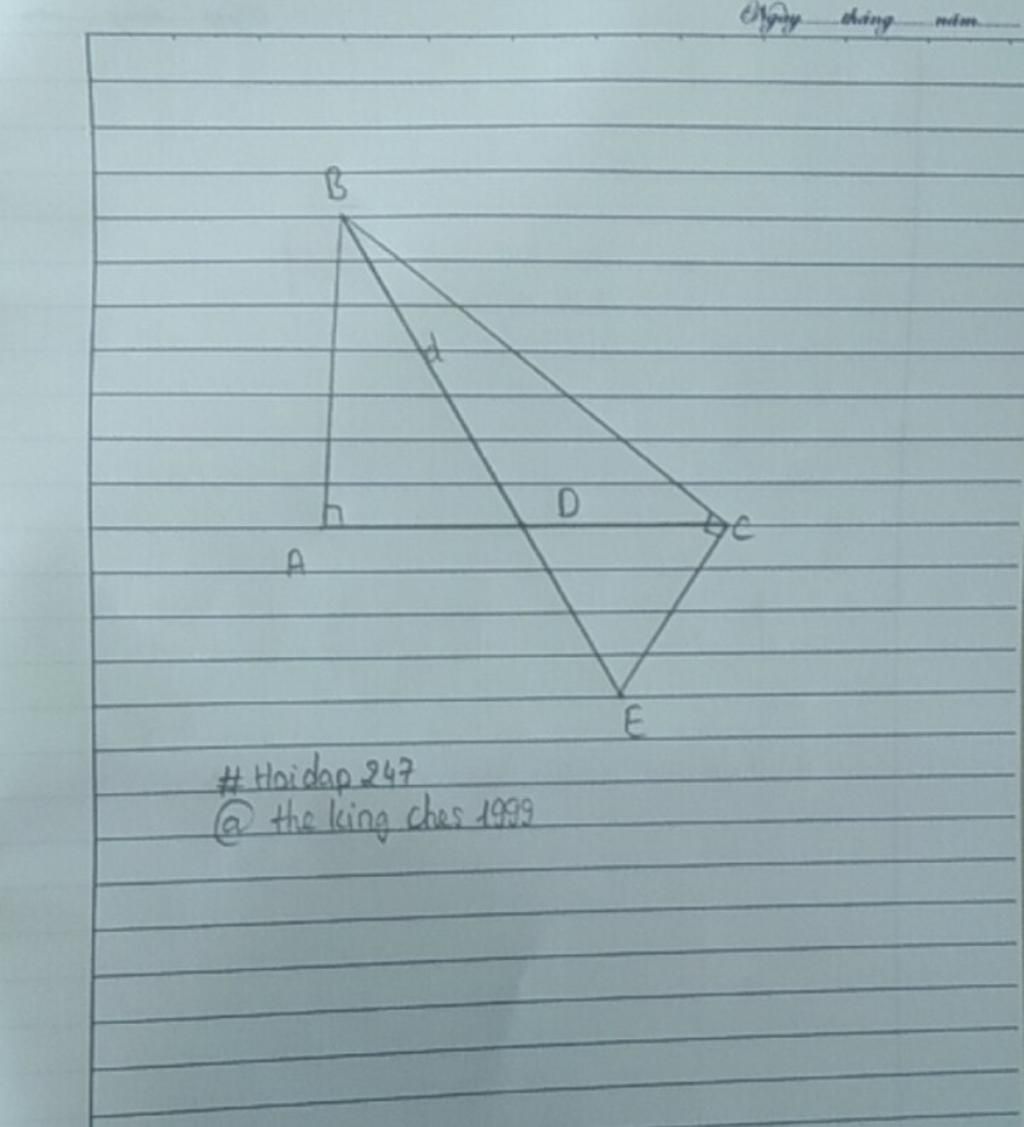 Ngày tháng năm
B
d
D
C
A
E
# Hoidap 247
@ the king ches 1999